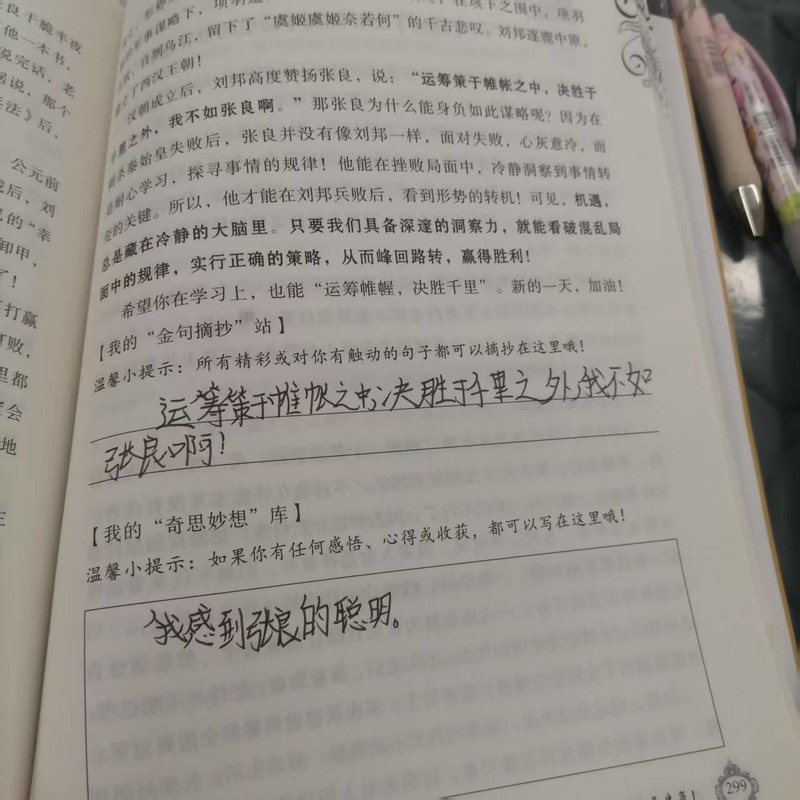 良干脆半夜
他一本书，
说完话，老
据说，那个
兵法》后，
公元前
成后，刘
己的“幸
卸甲，
了！
打赢
打败，
里都
会
地
在垓下之围中，项羽
自刎乌江，留下了“虞姬虞姬奈若何”的千古悲叹。刘邦逐鹿中原，
了西汉王朝！
汉朝成立后，刘邦高度赞扬张良，说：“运筹策于帷帐之中，决胜于
千里之外，我不如张良啊。”那张良为什么能身负如此谋略呢？因为在
刺杀秦始皇失败后，张良并没有像刘邦一样，面对失败，心灰意冷，而
是耐心学习，探寻事情的规律！他能在挫败局面中，冷静洞察到事情转
变的关键。所以，他才能在刘邦兵败后，看到形势的转机！可见，机遇，
总是藏在冷静的大脑里。只要我们具备深邃的洞察力，就能看破混乱局
面中的规律，实行正确的策略，从而峰回路转，赢得胜利！
希望你在学习上，也能“运筹帷幄，决胜千里”。新的一天，加油！
【我的“金句摘抄”站】
温馨小提示：所有精彩或对你有触动的句子都可以摘抄在这里哦！
运筹策于帷帐之中，决胜于千里之外，我不如
张良啊！
【我的“奇思妙想”库】
温馨小提示：如果你有任何感悟、心得或收获，都可以写在这里哦！
我感到张良的聪明。
299